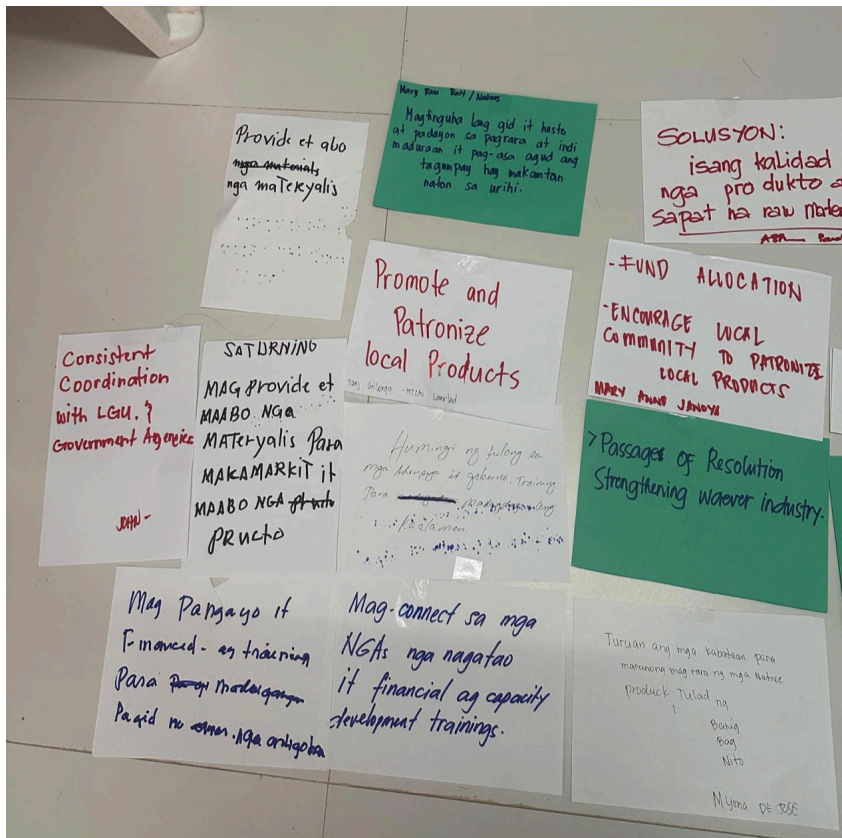 Provide et abo
mga materials
nga materyalis
Mary Rose Ratt / Nabas
Magtinguha lang gid it husto
at padayon sa pagrara at indi
maduraan it pag-asa agud ang
tagumpay hay makamtan
naton sa urihi.
SOLUSYON:
isang kalidad
nga produkto
sapat na raw mate
Promote and
Patronize
local Products
-FUND ALLOCATION
-ENCOURAGE LOCAL
COMMUNITY TO PATRONIZE
LOCAL PRODUCTS
MARY ANNE JANOYA
Consistent
Coordination
with LGU. &
Government Agencies
JOHN-
SATURNING
MAG Provide et
MAABO NGA
MATeryalis Para
MAKAMARKIT it
MAABO NGA
PRUCTO
Humingi ng tulong sa
mga ahensya it gobierno. Training
Para ang
Kaalaman.
>Passages of Resolution
Strengthening waever industry.
Mag Pangayo it
Financial - ag training
Para
Pagid
Mag-connect sa mga
NGAs nga nagatao
it financial ag capacity
development trainings.
Turuan ang mga kabataan para
marunong mag rara ng mga Native
produck Tulad ng
Banig
Bag
Nito
Myrna DE JOSE